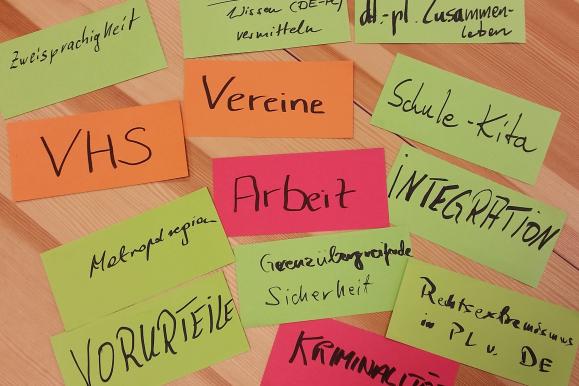 Zweisprachigkeit
Wissen (DE-PL)
vermitteln
dt.-pl. Zusammen-
leben
Vereine
Schule-Kita
VHS
Arbeit
INTEGRATION
Metropolregion
Grenzübergreifende
Sicherheit
Rechtsextremismus
in PL u. DE
VORURTEILE
KRIMINALITÄT